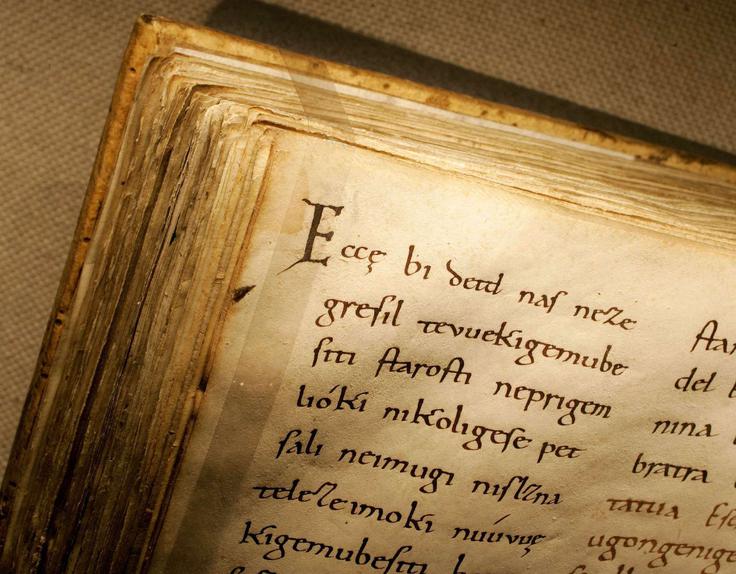 Eccę bi detd naſ neze
greſil tevuekigemube
ſiti ſtaroſti neprigem
lióki nikoligeſe pet
ſali neimugi niſlzna
teleze imoki núúvuę
kigemubeſiti b
ſtar
del
nina
bratra
tatua Eſ
ugongenig